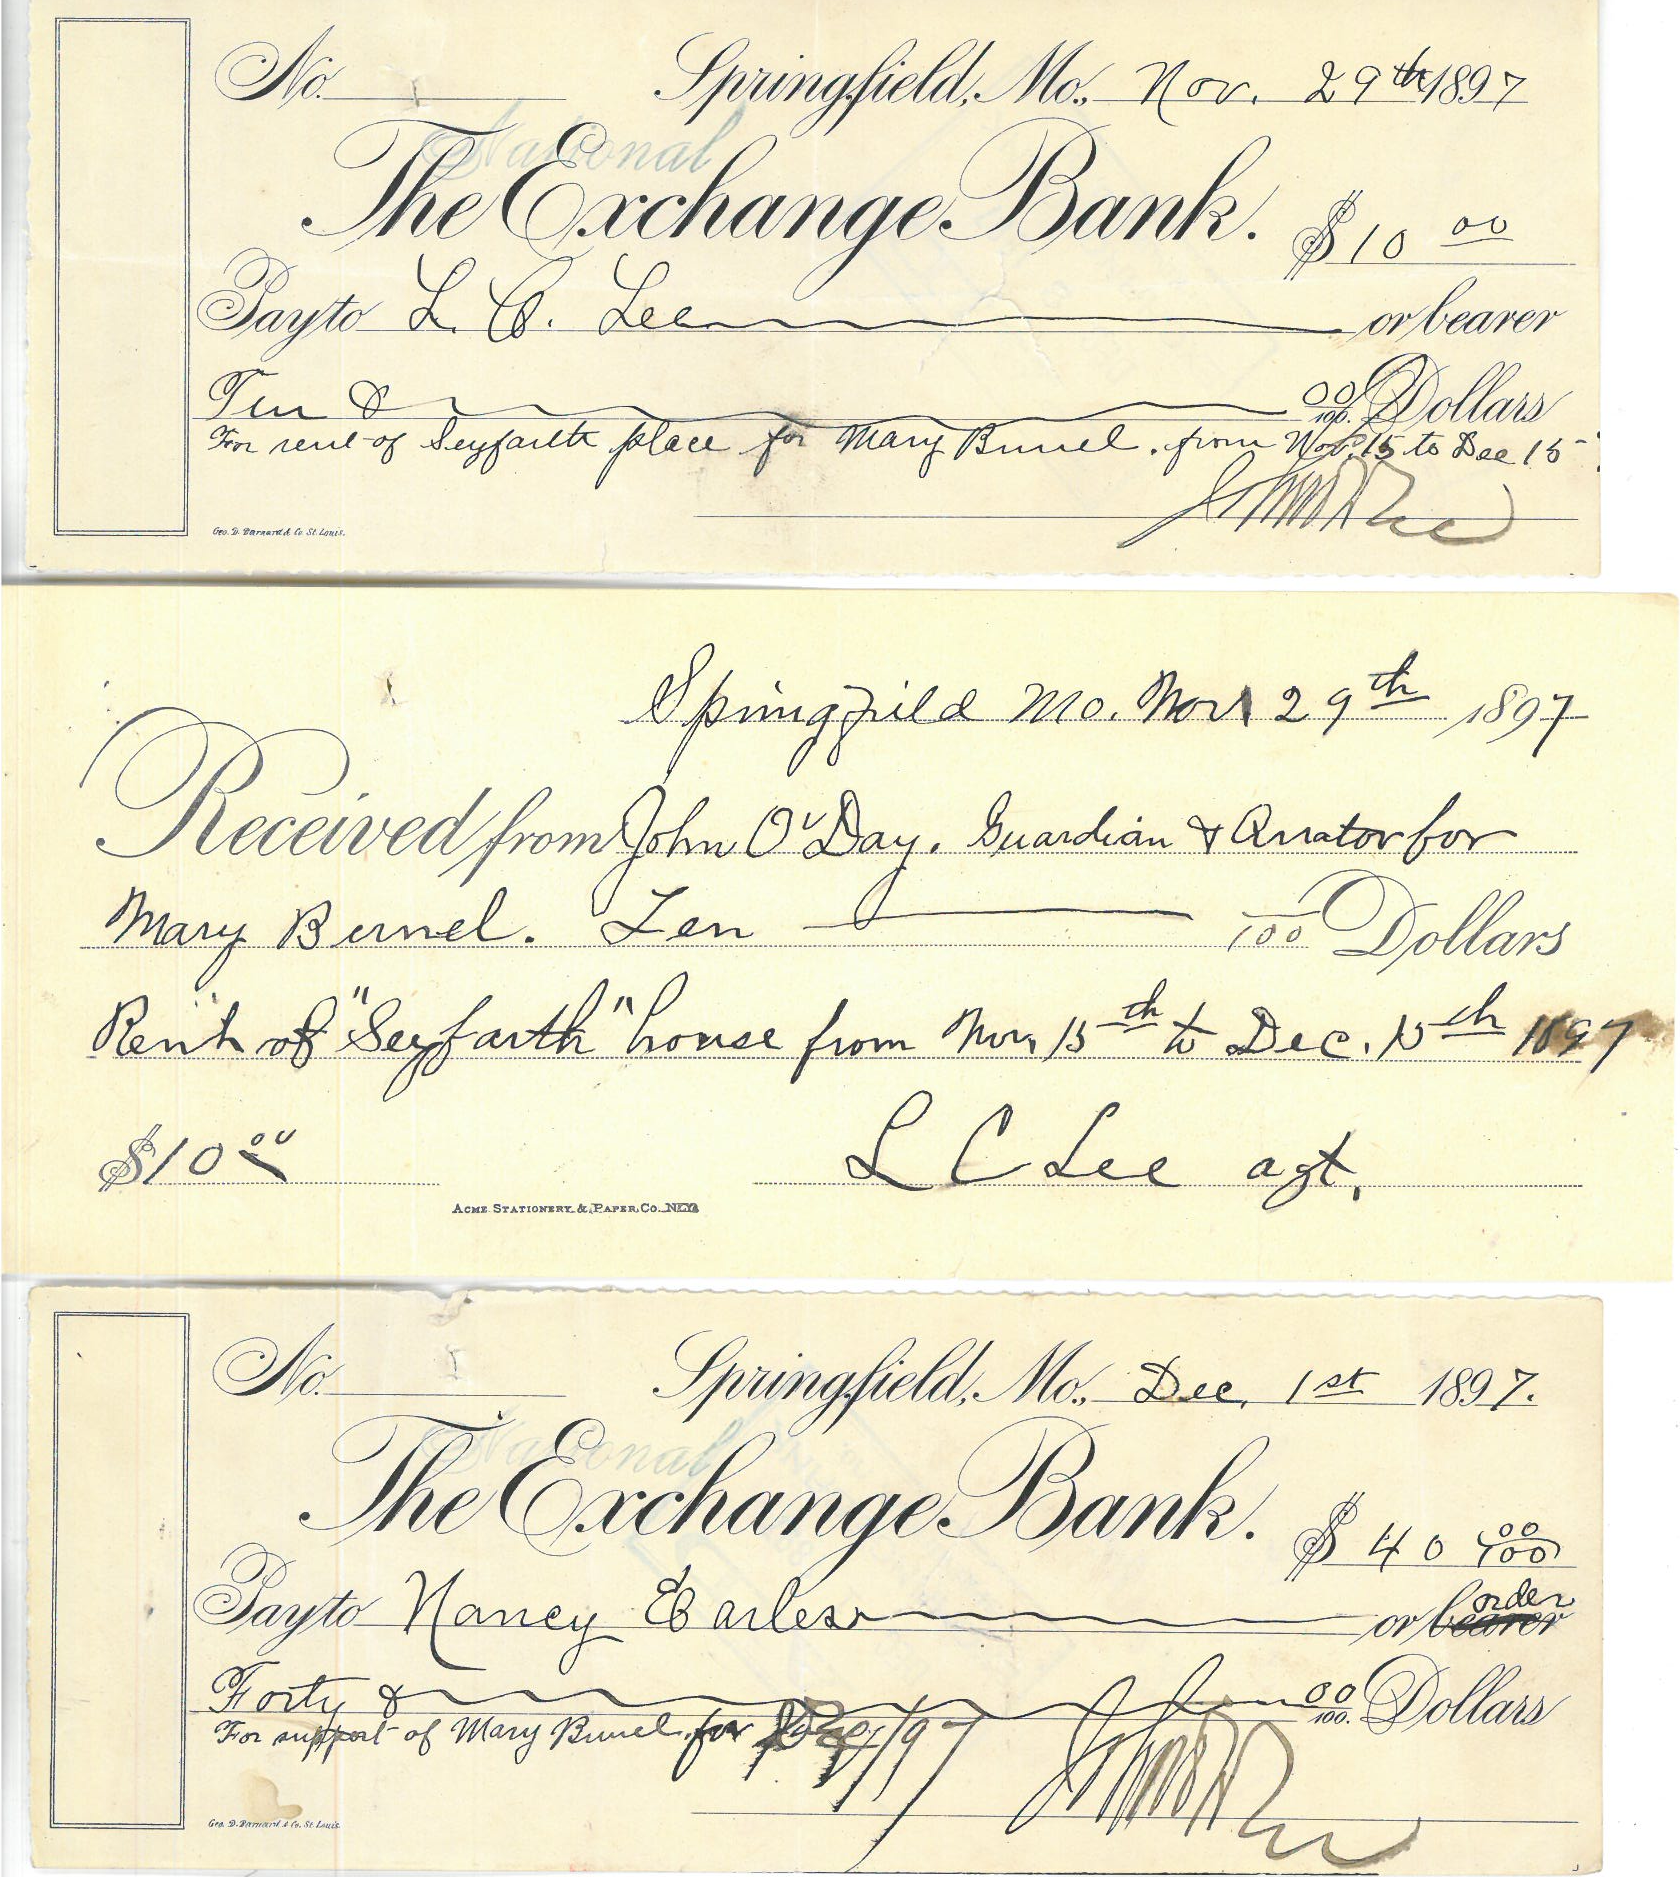 No. Springfield, Mo., Nov. 29th 1897
National
The Exchange Bank.
$10 00
Pay to L. C. Lee or bearer
Ten & 00/100. Dollars
For rent of Seyfarth place for Mary Bunel. from Nov. 15 to Dec 15
Geo. D. Barnard & Co. St. Louis.
Springfield Mo. Nov 29th 1897
Received from John O'Day. Guardian & Curator for
Mary Bunel. Ten /100 Dollars
Rent of "Seyfarth" house from Nov. 15th to Dec. 15th 1897
$10 00
L C Lee agt.
ACME STATIONERY & PAPER CO. N.Y.
No. Springfield, Mo., Dec. 1st 1897.
National
The Exchange Bank.
$ 40 00/100
order
Pay to Nancy Earles or bearer
Forty & 00/100. Dollars
For support of Mary Bunel for /97
Geo. D. Barnard & Co. St. Louis.